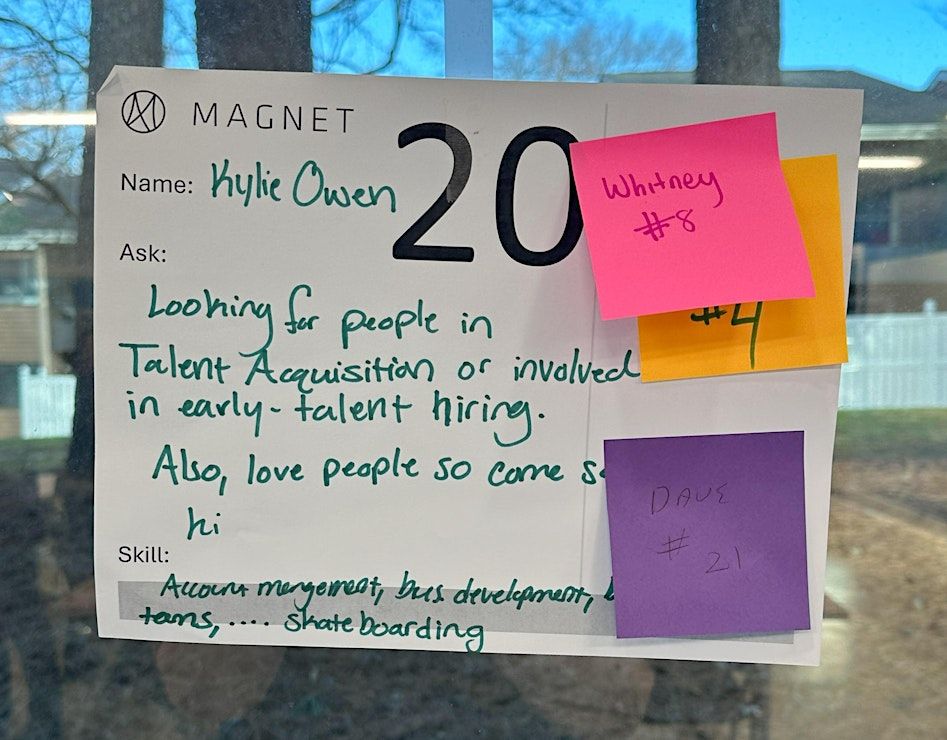 MAGNET
20
Name: Kylie Owen
Ask:
Looking for people in
Talent Acquisition or involved
in early-talent hiring.
Also, love people so come
hi
Skill:
Account mengement, bus development,
.... skateboarding
Whitney
#8
#4
DAVE
#
21